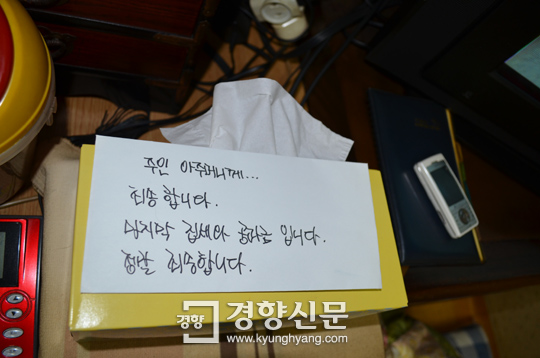 주인 아주머니께...
죄송합니다.
마지막 집세와 공과금 입니다.
정말 죄송합니다.
경향 경향신문
www.kyunghyang.com